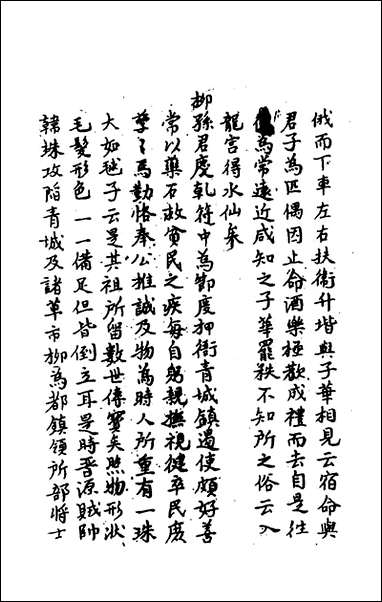 俄而下車左右扶衛升堦與子華相見云宿命與
君子為匹偶因止命酒樂極歡成禮而去自是往
為常遠近咸知之子華罷秩不知所之俗云入
龍宫得水仙矣
柳孫君慶乾符中為節度押衙青城鎮遏使頗好善
常以藥石救貧民之疾每自躬親撫視徤卒民庶
孳〻焉勤恪奉公推誠及物為時人所重有一珠
大如毬子云是其祖所留數世傳寳矣照物形状
毛髮形色一一備足但皆倒立耳是時晋源賊帥
韓珠攻陷青城及諸草市柳為都鎮領所部將士